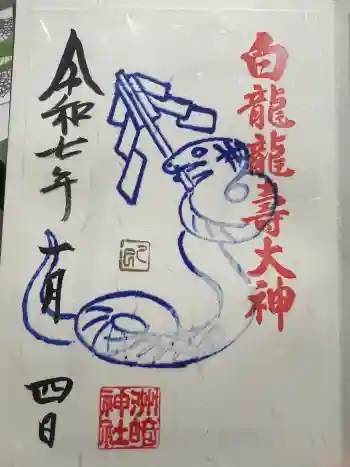 白龍龍壽大神
令和七年
十一月
四日
洲崎
神社